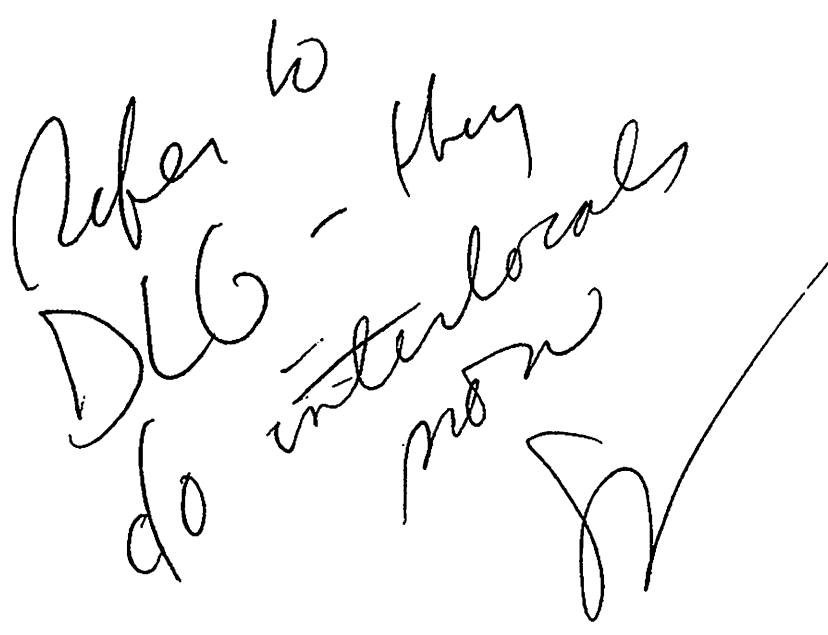 Refer to
DLG - they
do interlocals
now